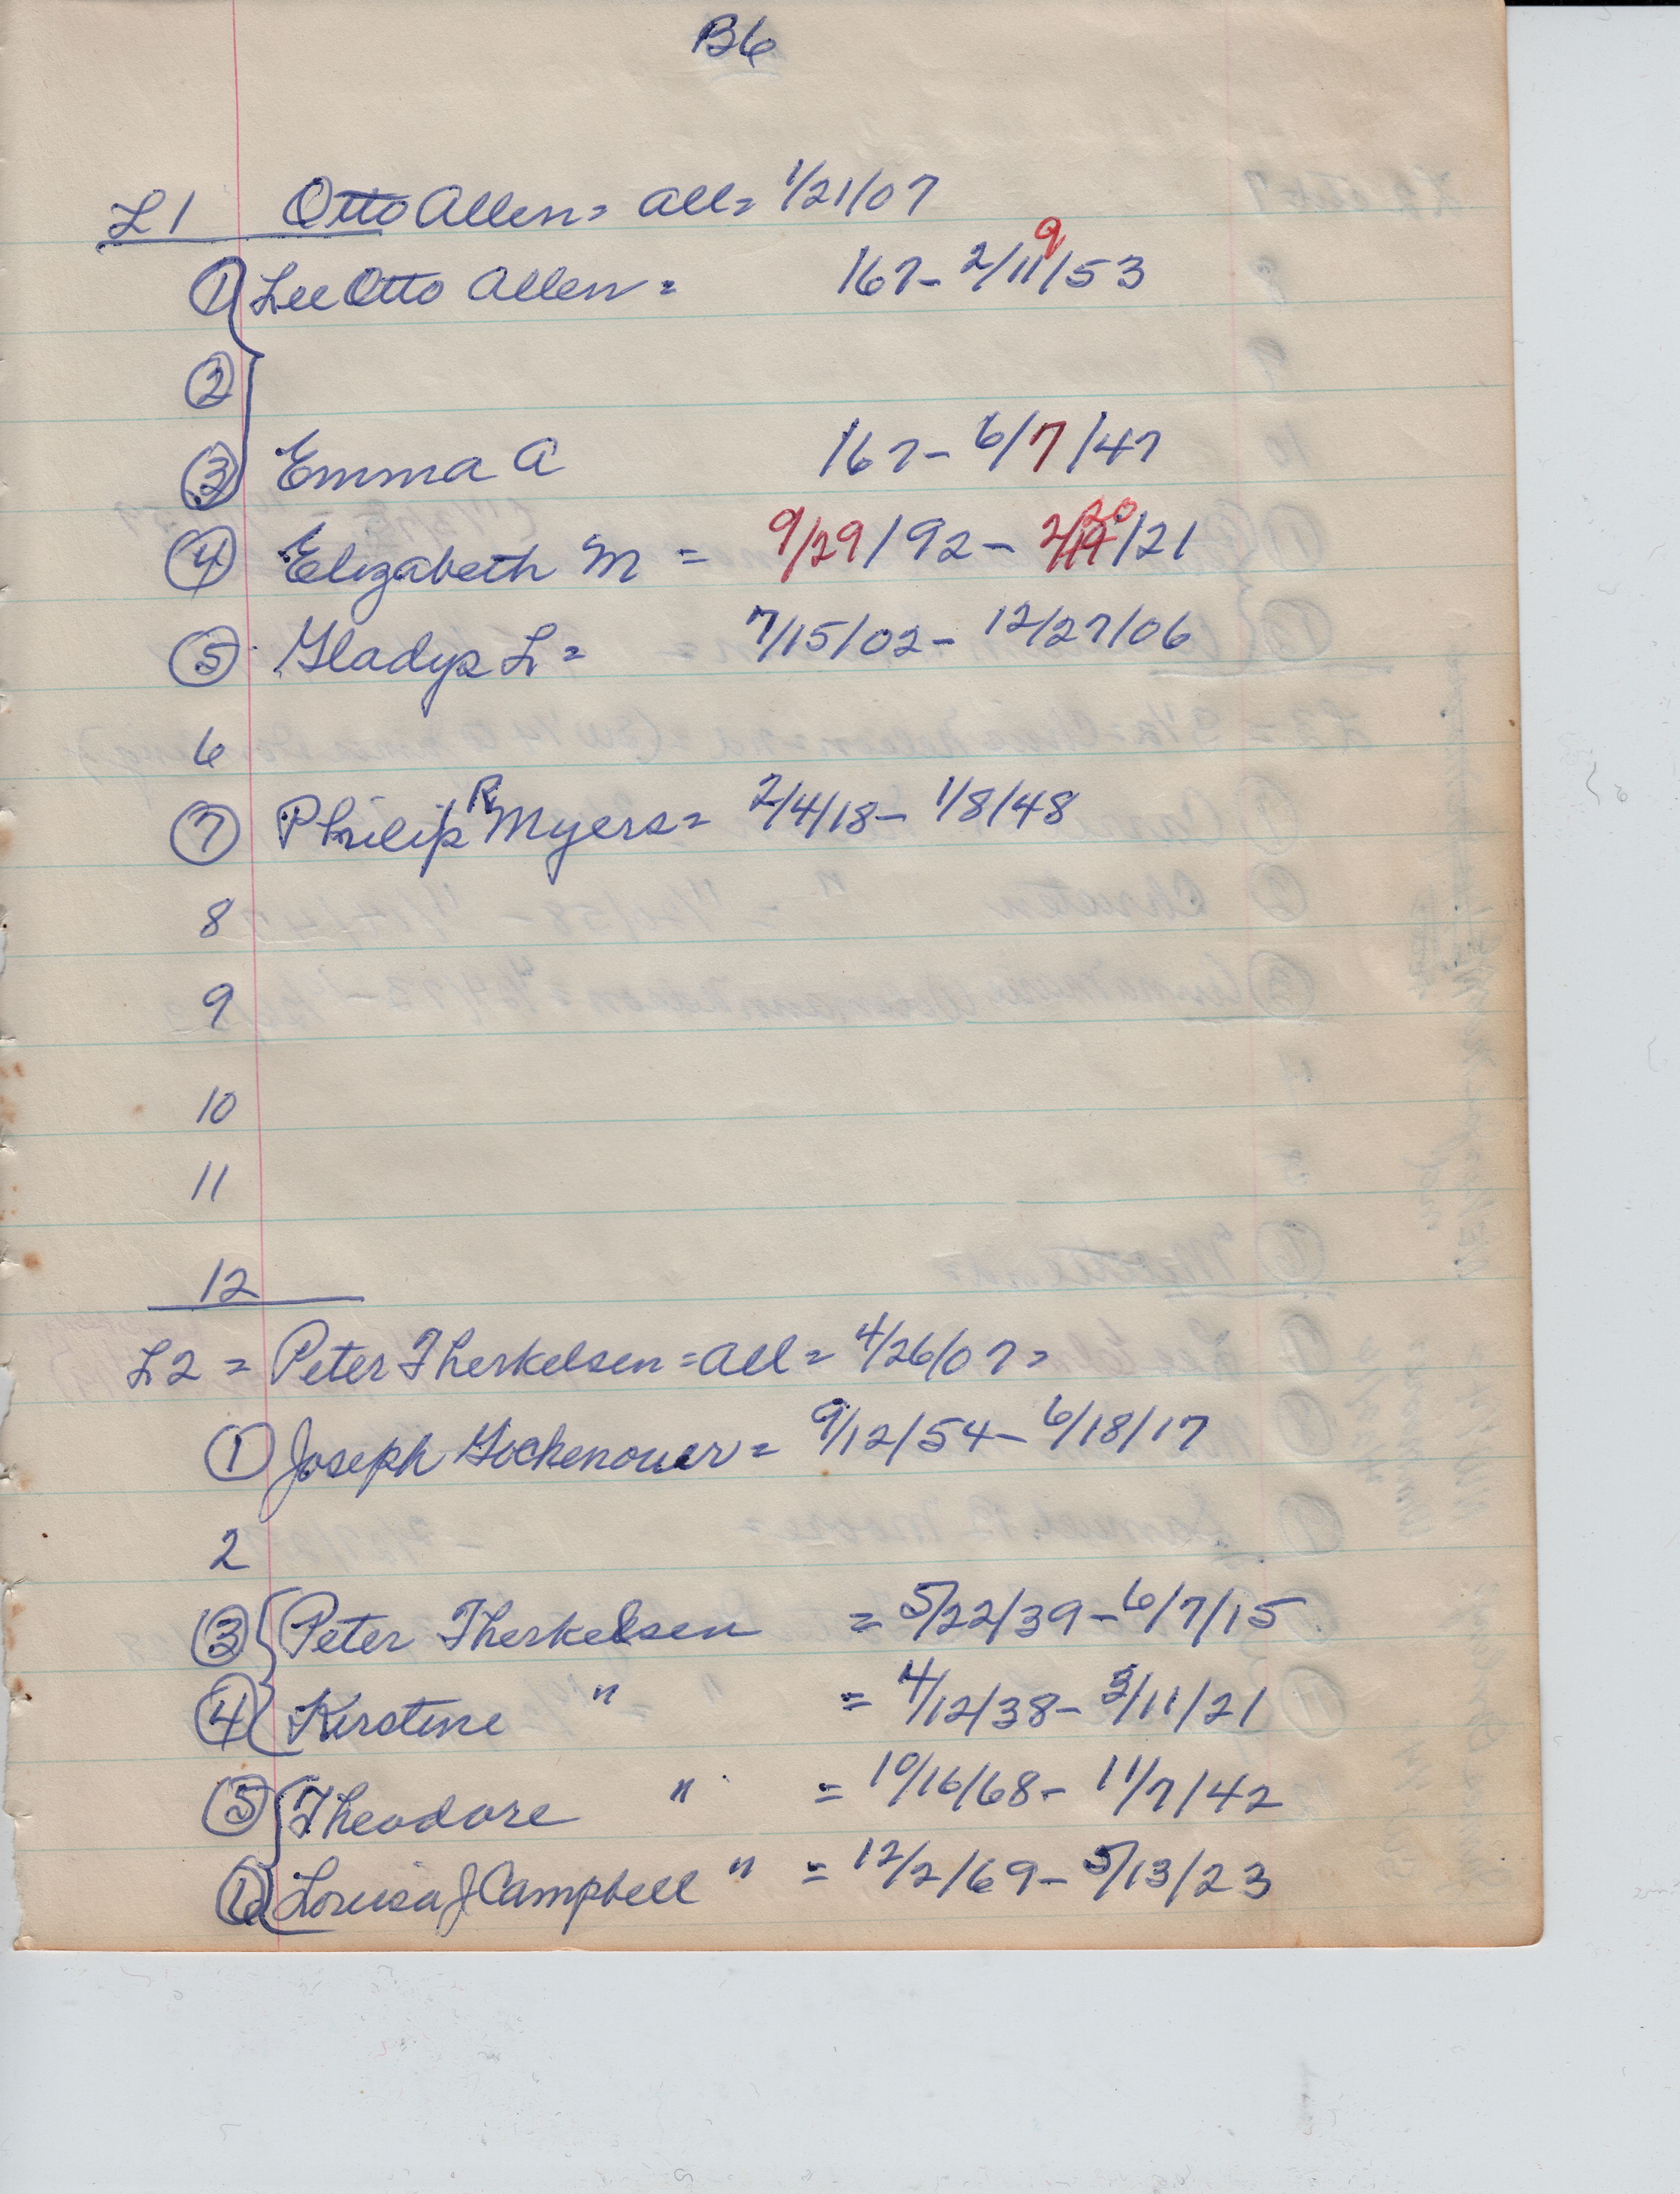 B6
L1 Otto Allen = all = 1/21/07
1 Lee Otto Allen = 167 - 2/11/53 9
2
3 Emma A 167 - 6/7/47
4 Elizabeth M = 9/29/92 - 2/20/21
5 Gladys L = 7/15/02 - 12/27/06
6
7 Philip R Myers = 2/4/18 - 1/8/48
8
9
10
11
12
L2 = Peter Therkelsen = all = 4/26/07 =
1 Joseph Gochenouer = 9/12/54 - 6/18/17
2
3 Peter Therkelsen = 5/22/39 - 6/7/15
4 Kirstine " = 4/12/38 - 3/11/21
5 Theodore " = 10/16/68 - 11/7/42
6 Louisa J Campbell " = 12/2/69 - 5/13/23